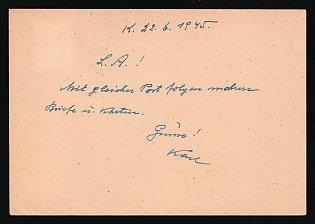 K. 22.6.1945.
L. A.!
Mit gleicher Post folgen mehrere
Briefe u. Karten.
Grüsse!
Karl